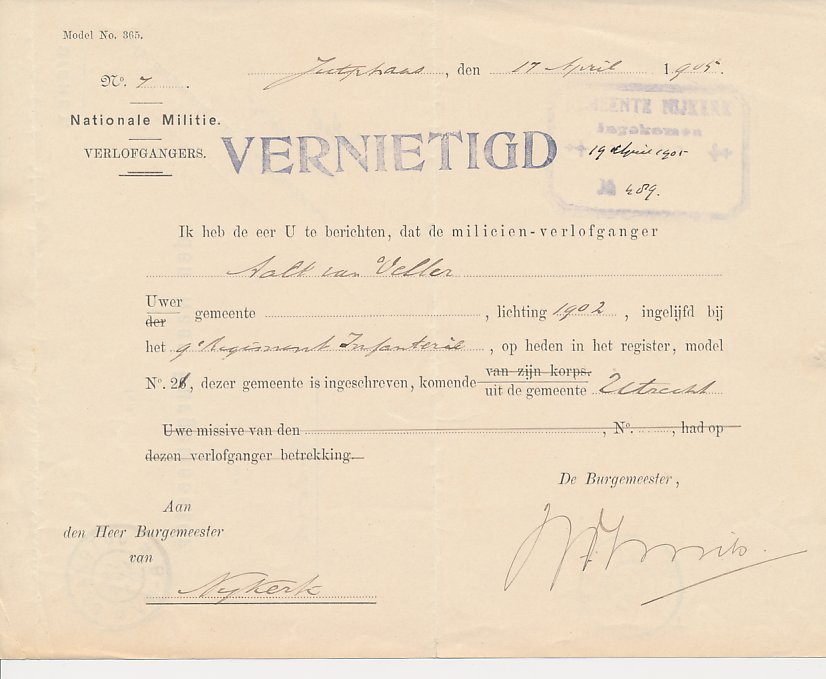 Model No. 365.
No. 7.
Jutphaas, den 17 April 1905.
Nationale Militie.
VERLOFGANGERS.
VERNIETIGD
GEMEENTE NIJKERK
ingekomen
19 April 1905
No 489.
Ik heb de eer U te berichten, dat de milicien-verlofganger
Aalt van Veller
Uwer
der
gemeente , lichting 1902, ingelijfd bij
het 9e Regiment Infanterie, op heden in het register, model
No. 21, dezer gemeente is ingeschreven, komende van zijn korps.
uit de gemeente Utrecht
Uwe missive van den , No. , had op
dezen verlofganger betrekking.
De Burgemeester,
Aan
den Heer Burgemeester
van
Nijkerk